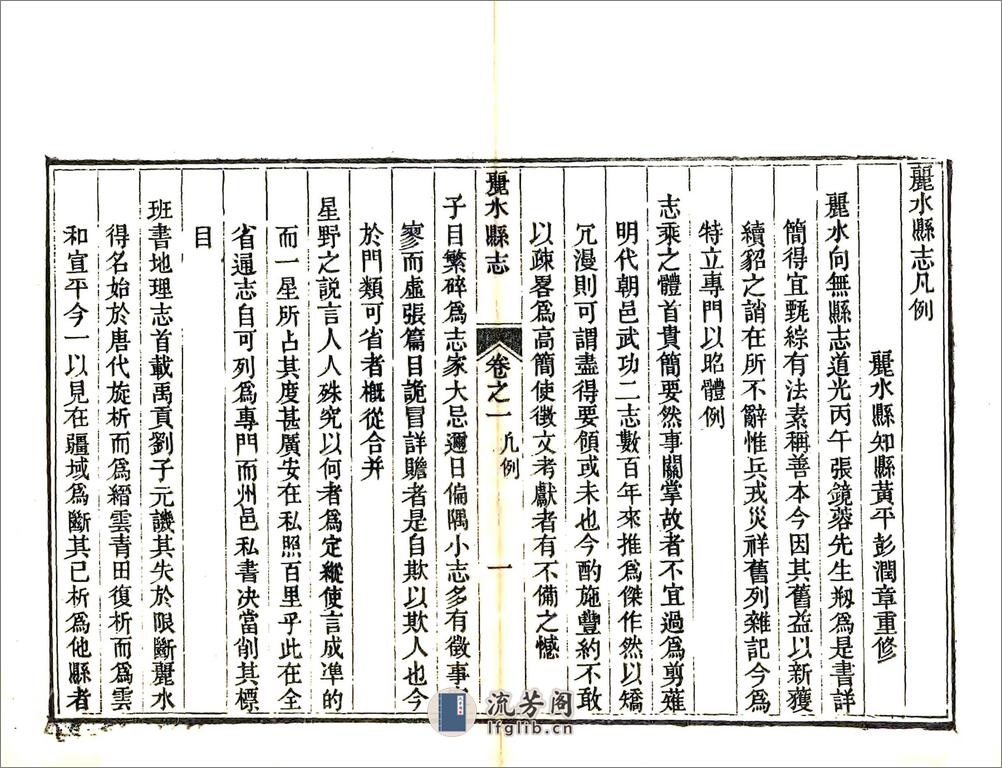 麗水縣志凡例
麗水縣知縣黃平彭潤章重修
麗水向無縣志道光丙午張鏡蓉先生刱為是書詳
簡得宜甄綜有法素稱善本今因其舊益以新獲
續貂之誚在所不辭惟兵戎災祥舊列雜記今為
特立專門以昭體例
志乘之體首貴簡要然事關掌故者不宜過為剪薙
明代朝邑武功二志數百年來推為傑作然以矯
冗漫則可謂盡得要領或未也今酌施豐約不敢
以疎畧為高簡使徵文考獻者有不備之憾
麗水縣志
卷之一
凡例
一
子目繁碎為志家大忌邇日偏隅小志多有徵事
寥而虛張篇目詭冒詳贍者是自欺以欺人也今
於門類可省者概從合并
星野之說言人人殊究以何者為定縱使言成凖的
而一星所占其度甚廣安在私照百里乎此在全
省通志自可列為專門而州邑私書決當削其標
目
班書地理志首載禹貢劉子元譏其失於限斷麗水
得名始於唐代旋析而為縉雲青田復析而為雲
和宣平今一以見在疆域為斷其已析為他縣者
流芳阁
lfglib.cn